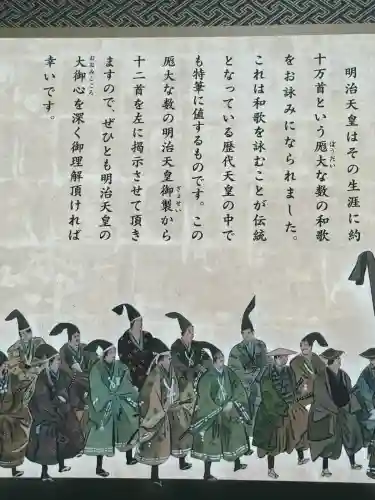 明治天皇はその生涯に約
十万首という厖大な数の和歌
をお詠みになられました。
これは和歌を詠むことが伝統
となっている歴代天皇の中で
も特筆に値するものです。この
厖大な数の明治天皇御製から
十二首を左に掲示させて頂き
ますので、ぜひとも明治天皇の
大御心を深く御理解頂ければ
幸いです。
ぼうだい
ぎょせい
おおみこころ